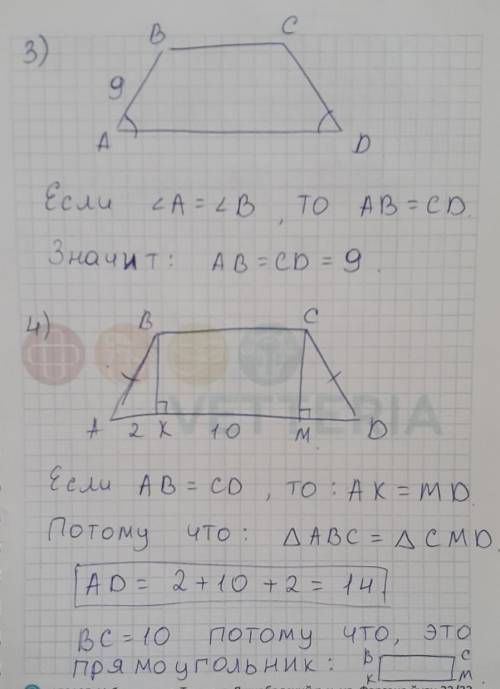 3)
B C
9
A D
Если ∠A = ∠B , ТО AB = CD.
Значит: AB = CD = 9.
4)
B C
VETTERIA
A 2 K 10 M D
Если AB = CD , ТО : AK = MD.
Потому что: △ABC = △CMD.
AD = 2 + 10 + 2 = 14
BC = 10 потому что, это
прямоугольник: B C
K M